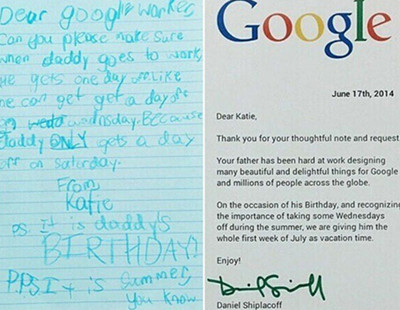 Dear google worker,
Can you please make sure
when daddy goes to work,
he gets one day off. Like
he can get get a day off
on wedo wednsday. Because
daddy ONLY gets a day
off on saturday.
From,
Katie
P.S. It is daddy's
BIRTHDAY!
P.P.S. It is summer,
you know
Google
June 17th, 2014
Dear Katie,
Thank you for your thoughtful note and request.
Your father has been hard at work designing
many beautiful and delightful things for Google
and millions of people across the globe.
On the occasion of his Birthday, and recognizing
the importance of taking some Wednesdays
off during the summer, we are giving him the
whole first week of July as vacation time.
Enjoy!
Daniel Shiplacoff